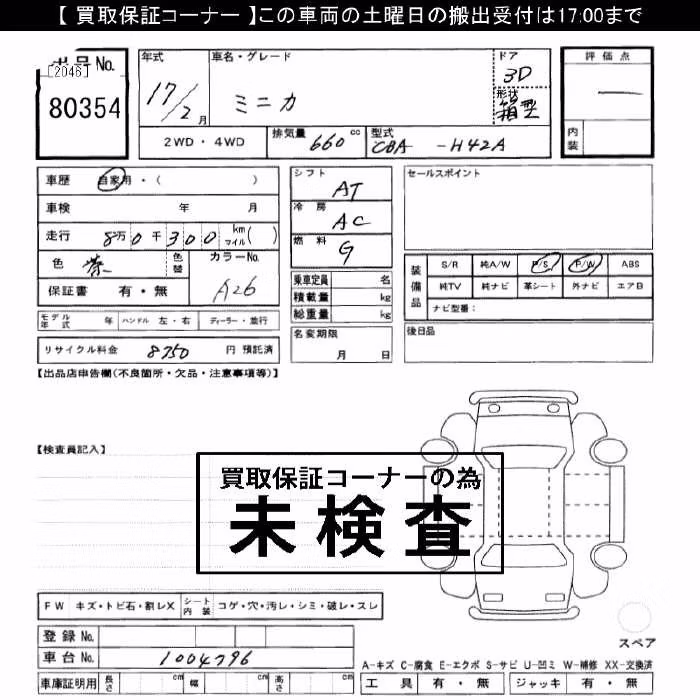 【 買取保証コーナー 】この車両の土曜日の搬出受付は17:00まで
[2046]
80354
年式 17/2 月
車名・グレード ミニカ
ドア 3D
形状 箱型
2WD・4WD
排気量 660 cc
型式 CBA -H42A
評価点
内装
車歴 自家用・( )
車検 年 月
走行 8万0千300 km マイル( )
色 茶 色替
カラーNo. A26
保証書 有・無
モデル年式 年 ハンドル 左・右 ディーラー・並行
リサイクル料金 8750 円 預託済
シフト AT
冷房 AC
燃料 G
乗車定員 名
積載量 kg
総重量 kg
名変期限 月 日
セールスポイント
装備品
S/R 純A/W P/S P/W ABS
純TV 純ナビ 革シート 外ナビ エアB
ナビ型番:
後日品
【出品店申告欄(不良箇所・欠品・注意事項等)】
【検査員記入】
買取保証コーナーの為
未検査
FW キズ・トビ石・割レX シート内装 コゲ・穴・汚レ・シミ・破レ・スレ
登録No.
車台No. 1004796
車庫証明用 長さ cm 幅 cm 高さ cm
スペア
A-キズ C-腐食 E-エクボ S-サビ U-凹ミ W-補修 XX-交換済
工具 有・無 ジャッキ 有・無